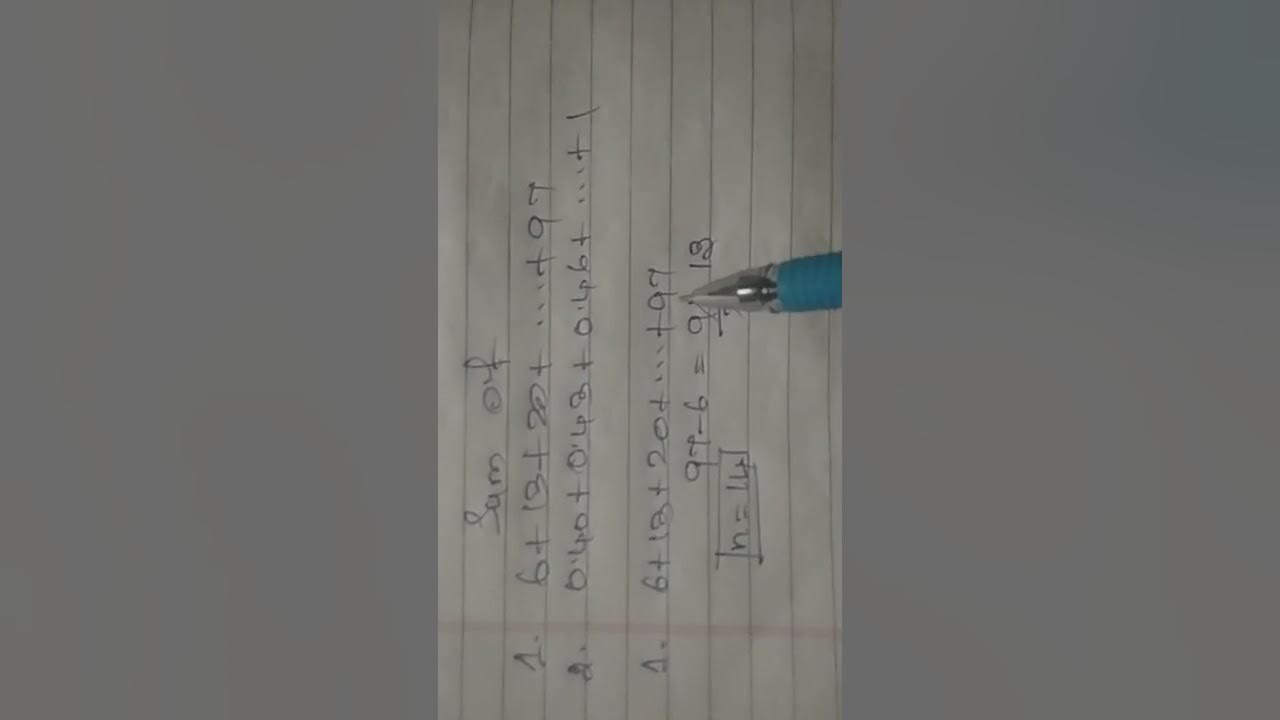 Sum of
1. 6+13+20+....+97
2. 0.40+0.43+0.46+....+1
1. 6+13+20+...+97
97-6 = 9 13
n=14